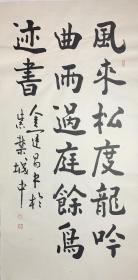 風來松度龍吟
曲雨過庭餘鳥
迹書
金達昌書於
紫葉城中